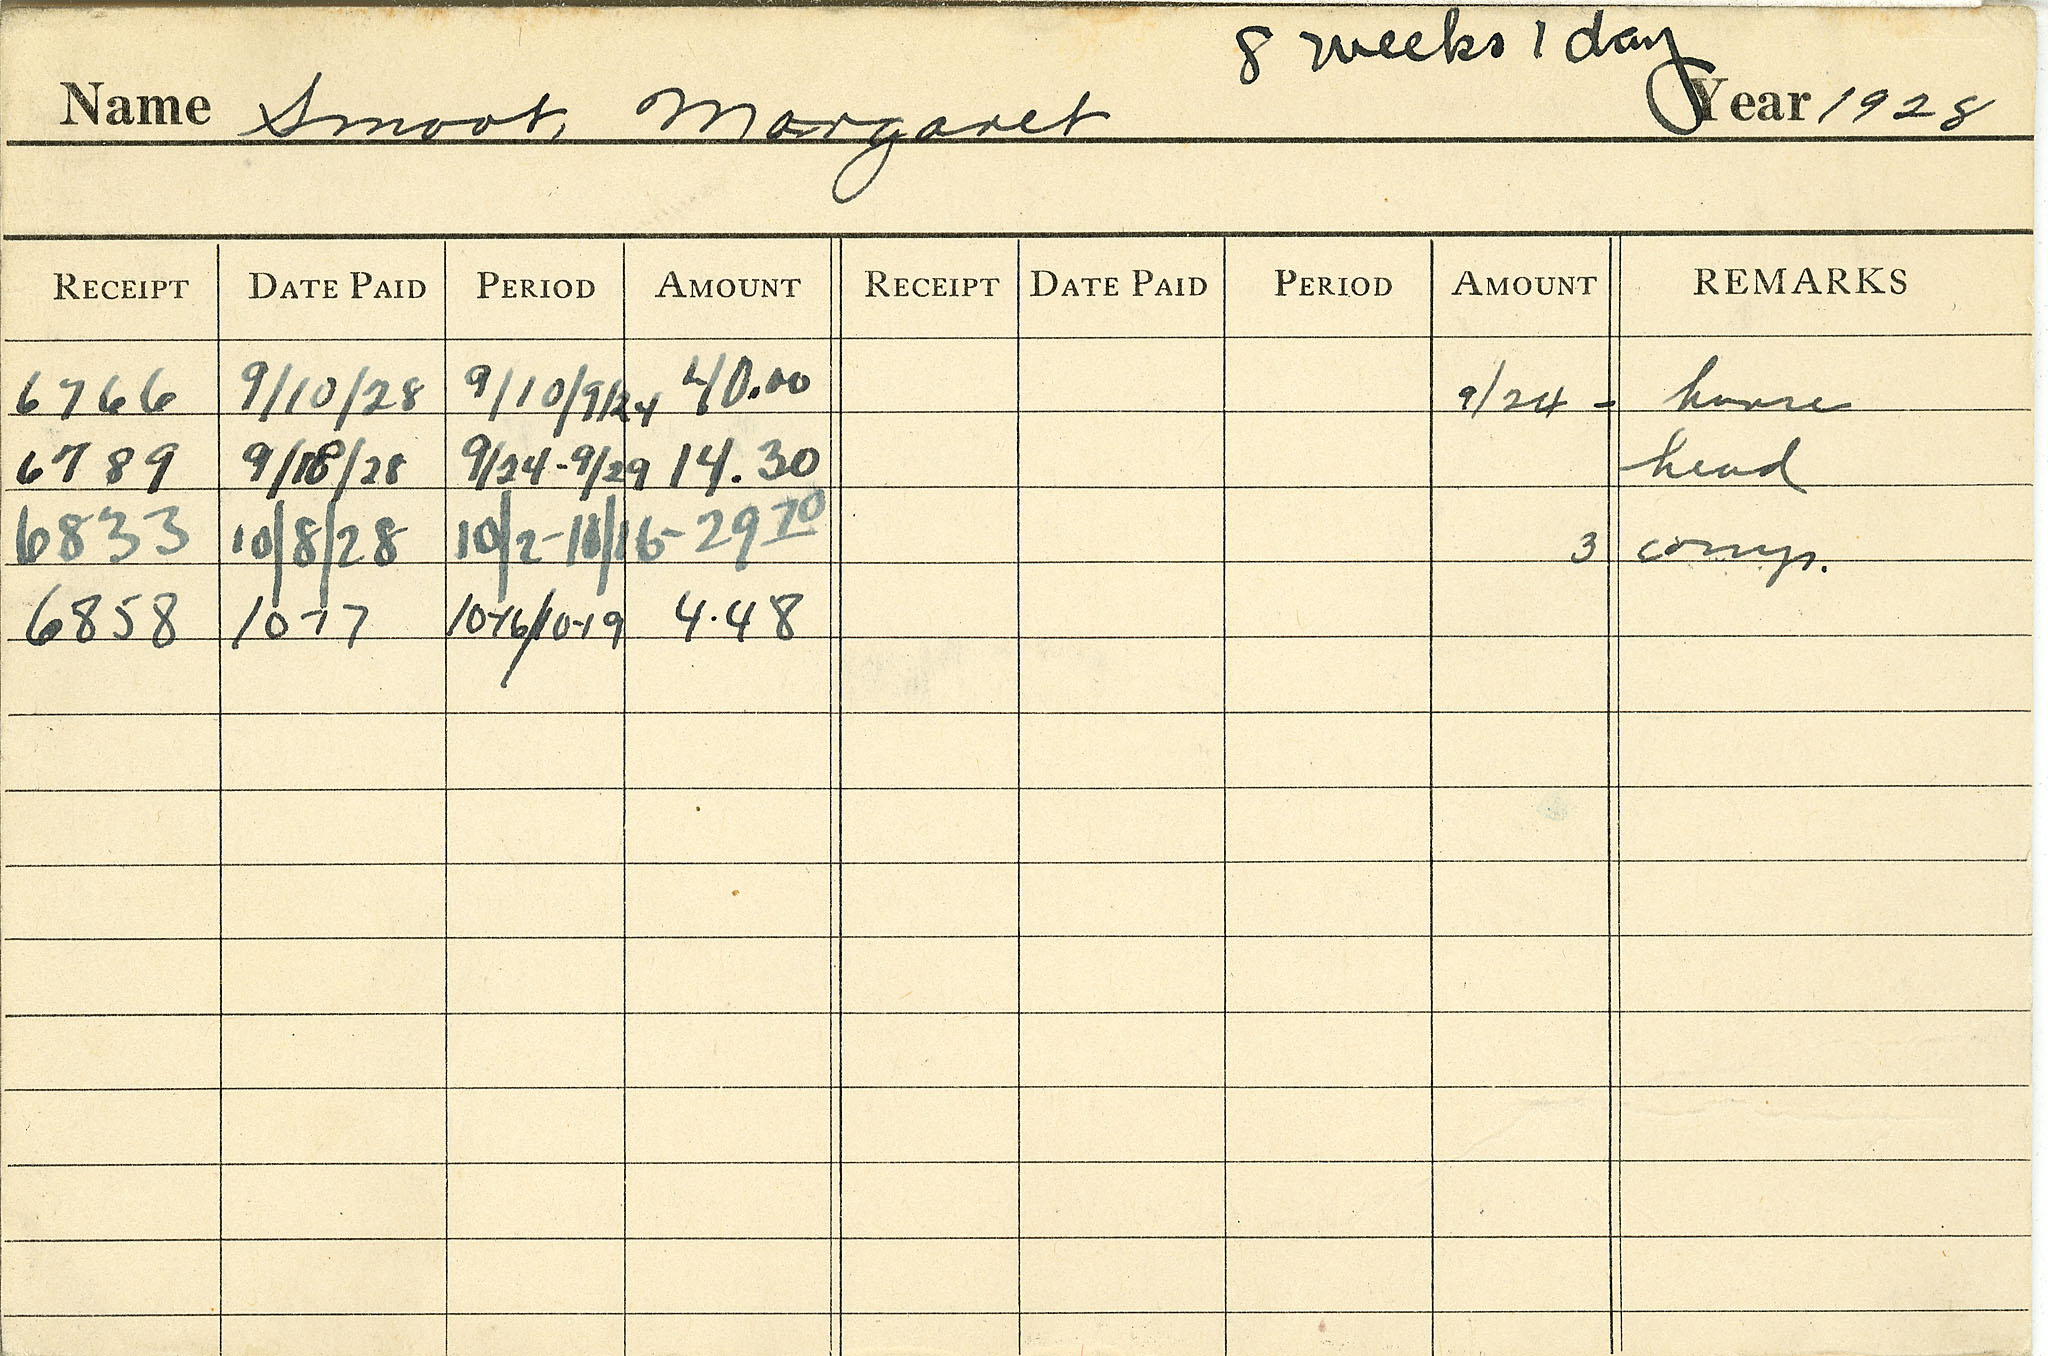 8 weeks 1 day
Name Smoot, Margaret Year 1928
RECEIPT DATE PAID PERIOD AMOUNT RECEIPT DATE PAID PERIOD AMOUNT REMARKS
6766 9/10/28 9/10/9/24 40.00 9/24 - horse
6789 9/18/28 9/24-9/29 14.30 head
6833 10/8/28 10/2-10/16- 29 70 3 comps.
6858 10-17 10-16/10-19 4.48